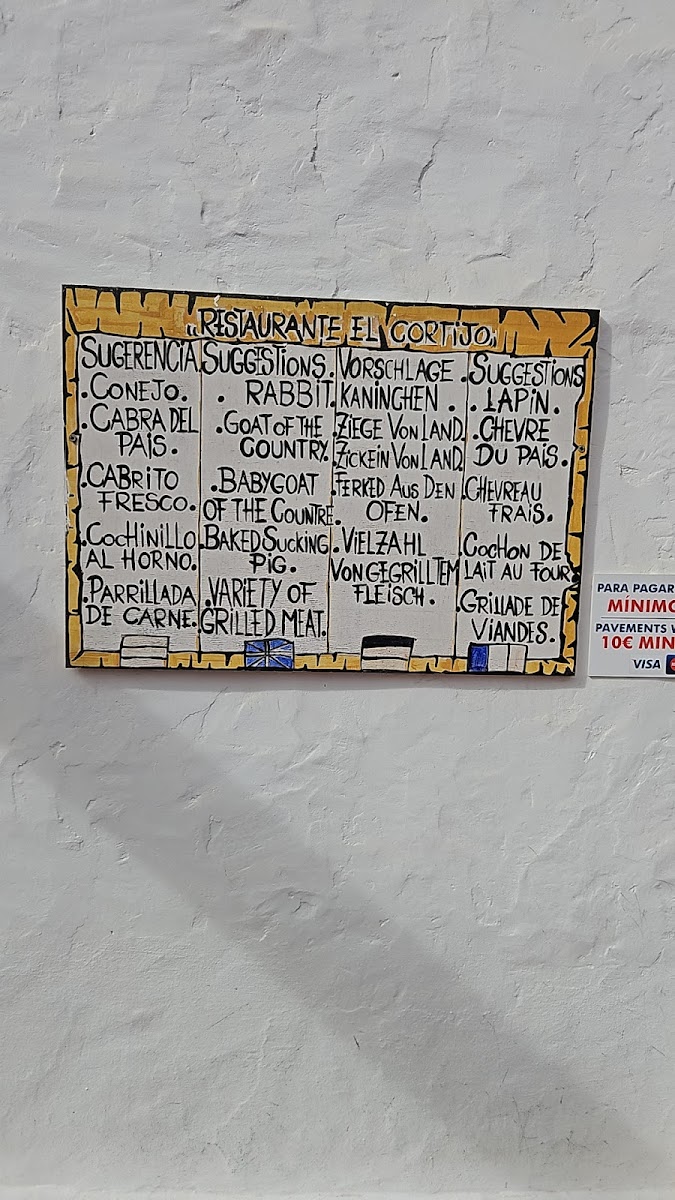 RESTAURANTE EL CORTIJO
SUGERENCIA
.CONEJO.
.CABRA DEL
PAIS.
.CABRITO
FRESCO.
.COCHINILLO
AL HORNO.
.PARRILLADA
DE CARNE.
SUGGESTIONS.
. RABBIT.
.GOAT OF THE
COUNTRY.
.BABYGOAT
OF THE COUNTRE.
.BAKED SUCKING
PIG.
.VARIETY OF
GRILLED MEAT.
VORSCHLAGE
KANINCHEN .
ZIEGE VON LAND.
ZICKEIN VON LAND.
.FERKED AUS DEN
OFEN.
.VIELZAHL
VON GEGRILLTEM
FLEISCH.
.SUGGESTIONS
. LAPIN.
.CHEVRE
DU PAIS.
.CHEVREAU
FRAIS.
.COCHON DE
LAIT AU FOUR
.GRILLADE DE
VIANDES.
PARA PAGAR
MÍNIMO
PAVEMENTS
10€ MIN
VISA